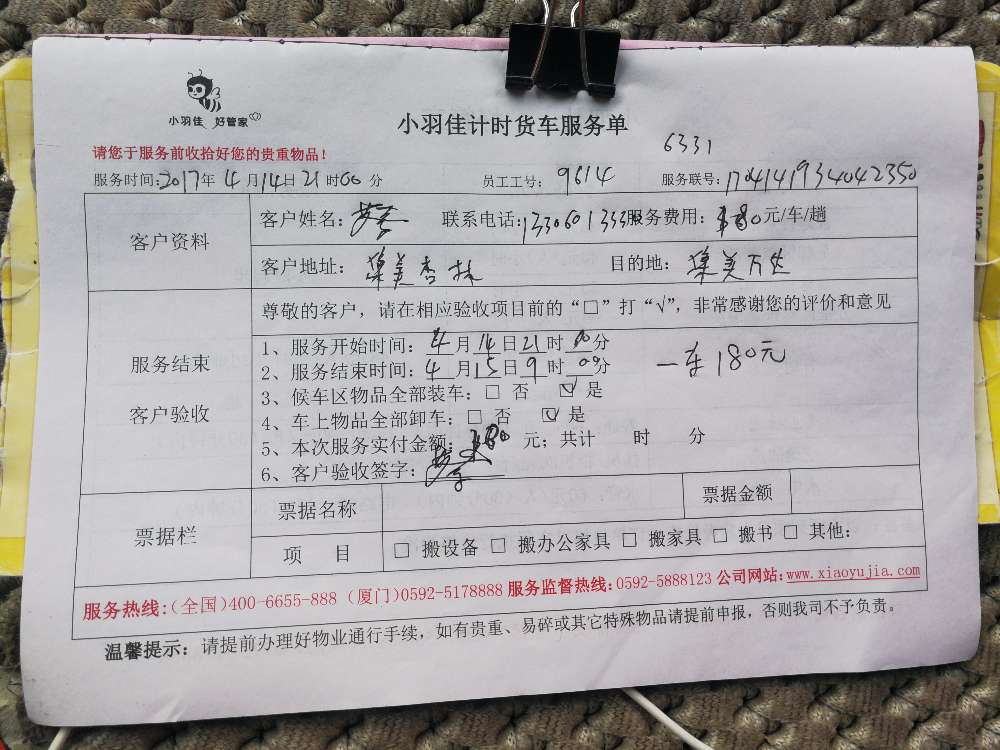 小羽佳 好管家
小羽佳计时货车服务单
6331
请您于服务前收拾好您的贵重物品！
服务时间:2017年4月14日21时00分 员工工号: 9614 服务联号:1704141934042350
客户资料
客户姓名: 联系电话:1330601333 服务费用: 180元/车/趟
客户地址: 集美杏林 目的地: 集美万达
服务结束
客户验收
尊敬的客户，请在相应验收项目前的“□”打“√”，非常感谢您的评价和意见
1、服务开始时间: 4月14日21时00分
2、服务结束时间: 4月15日9时00分
一车180元
3、候车区物品全部装车: □ 否 ☑ 是
4、车上物品全部卸车: □ 否 ☑ 是
5、本次服务实付金额: 180元; 共计 时 分
6、客户验收签字:
票据栏
票据名称 票据金额
项 目 □ 搬设备 □ 搬办公家具 □ 搬家具 □ 搬书 □ 其他:
服务热线:(全国)400-6655-888 (厦门)0592-5178888 服务监督热线:0592-5888123 公司网站:www.xiaoyujia.com
温馨提示: 请提前办理好物业通行手续，如有贵重、易碎或其它特殊物品请提前申报，否则我司不予负责。